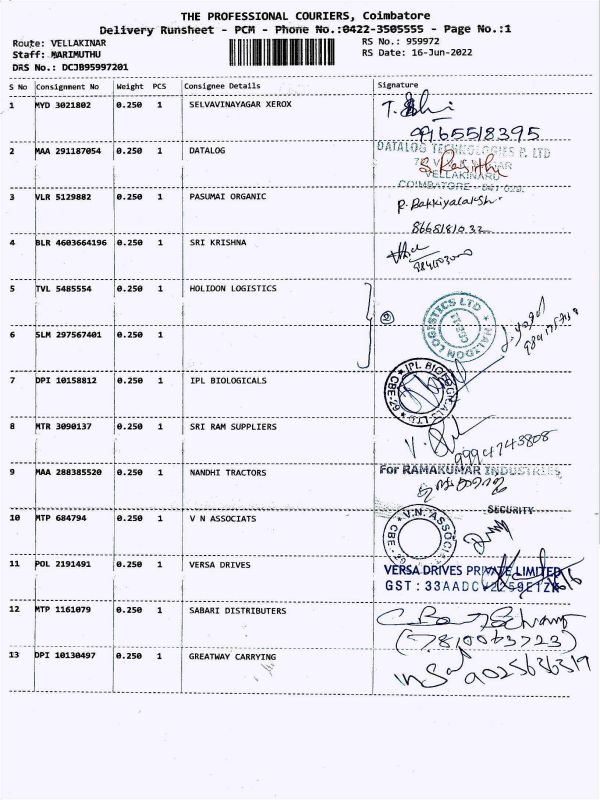 THE PROFESSIONAL COURIERS, Coimbatore
Delivery Runsheet - PCM - Phone No.:0422-3505555 - Page No.:1
Route: VELLAKINAR
RS No.: 959972
Staff: MARIMUTHU
RS Date: 16-Jun-2022
DRS No.: DCJB95997201
S No Consignment No Weight PCS Consignee Details Signature
1 MYD 3021802 0.250 1 SELVAVINAYAGAR XEROX
99165518395
2 MAA 291187054 0.250 1 DATALOG DATALOG TECHNOLOGIES P. LTD
VELLAKINAR
COIMBATORE - 641 029.
3 VLR 5129882 0.250 1 PASUMAI ORGANIC
4 BLR 4603664196 0.250 1 SRI KRISHNA
5 TVL 5485554 0.250 1 HOLIDON LOGISTICS
2
HALYDON LOGISTICS LTD
6 SLM 297567401 0.250 1
7 DPI 10158812 0.250 1 IPL BIOLOGICALS
IPL BIOLOGICALS LTD
8 MTR 3090137 0.250 1 SRI RAM SUPPLIERS
9994743808
9 MAA 288385520 0.250 1 NANDHI TRACTORS For RAMAKUMAR INDUSTRIES
SECURITY
10 MTP 684794 0.250 1 V N ASSOCIATS
V.N. ASSOCIAT
11 POL 2191491 0.250 1 VERSA DRIVES VERSA DRIVES PRIVATE LIMITED
GST : 33AADCV2259E1ZA
12 MTP 1161079 0.250 1 SABARI DISTRIBUTERS
(7810063723)
13 DPI 10130497 0.250 1 GREATWAY CARRYING
9025636319